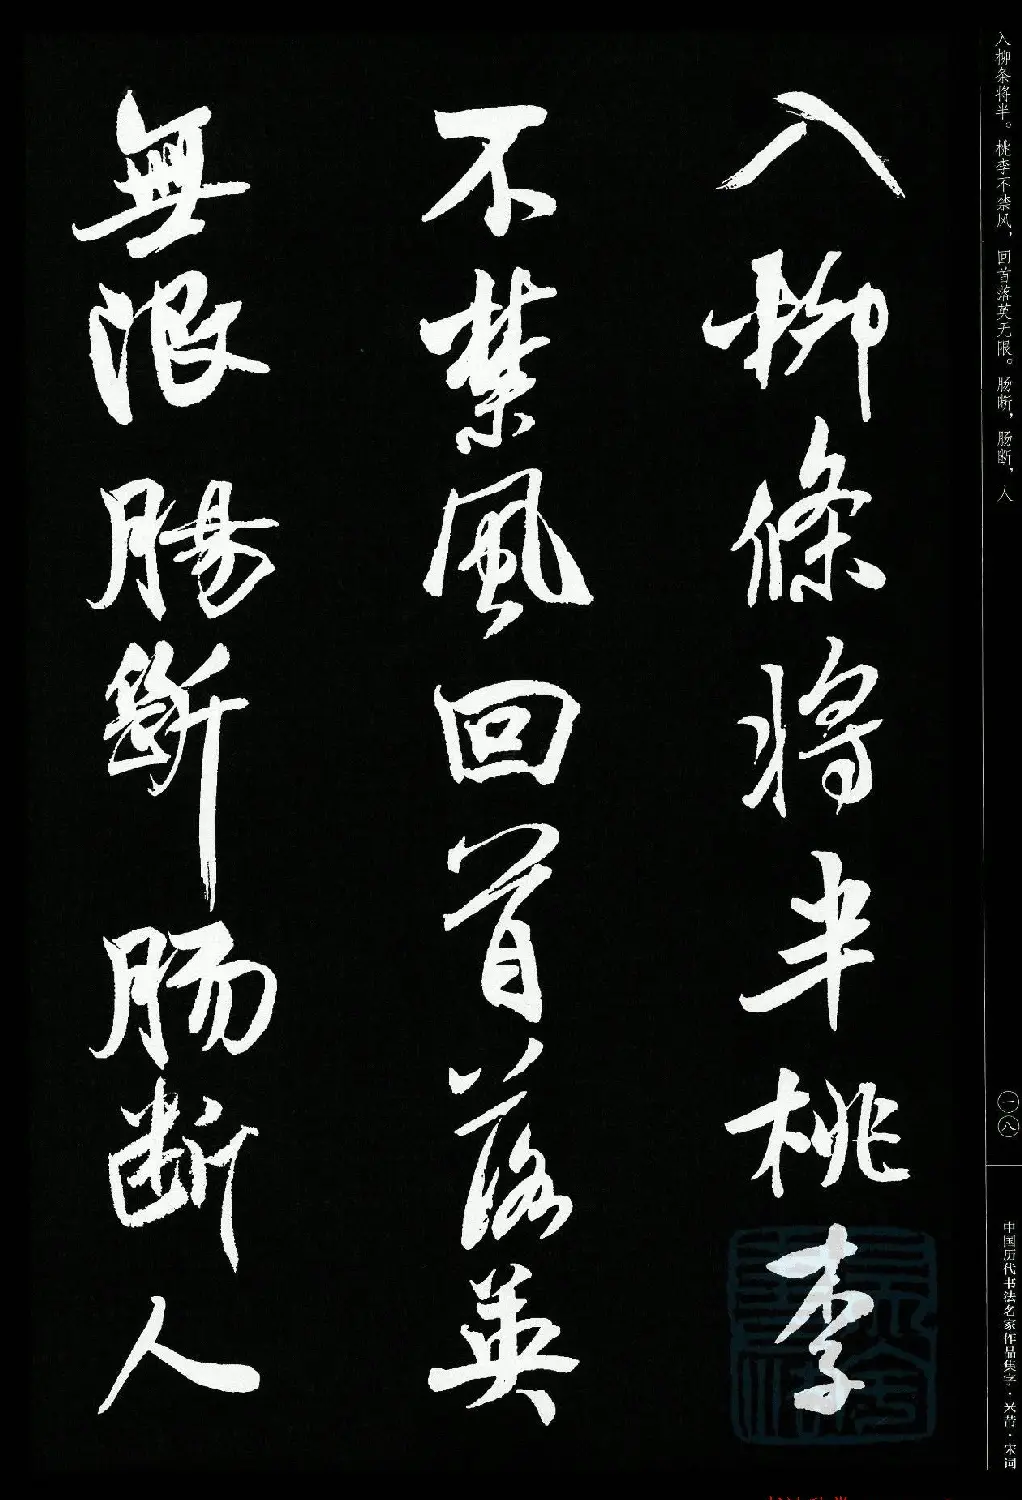 入柳条将半。桃李不禁风，回首落英无限。肠断，肠断，人
入柳條將半桃李
不禁風回首落英
無限腸斷肠断人
一八
中国历代书法名家作品集字·米芾·宋词